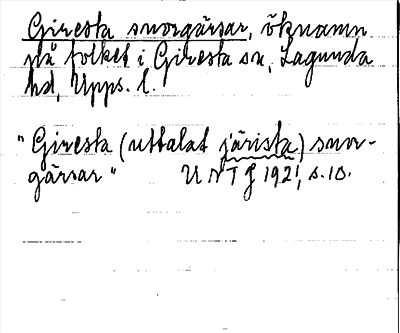 Giresta snorgärsar, öknamn
på folket i Giresta sn, Lagunda
hd, Upps. l.
"Giresta (uttalat järista) snor-
gärsar" UNTG 1921, s. 10.